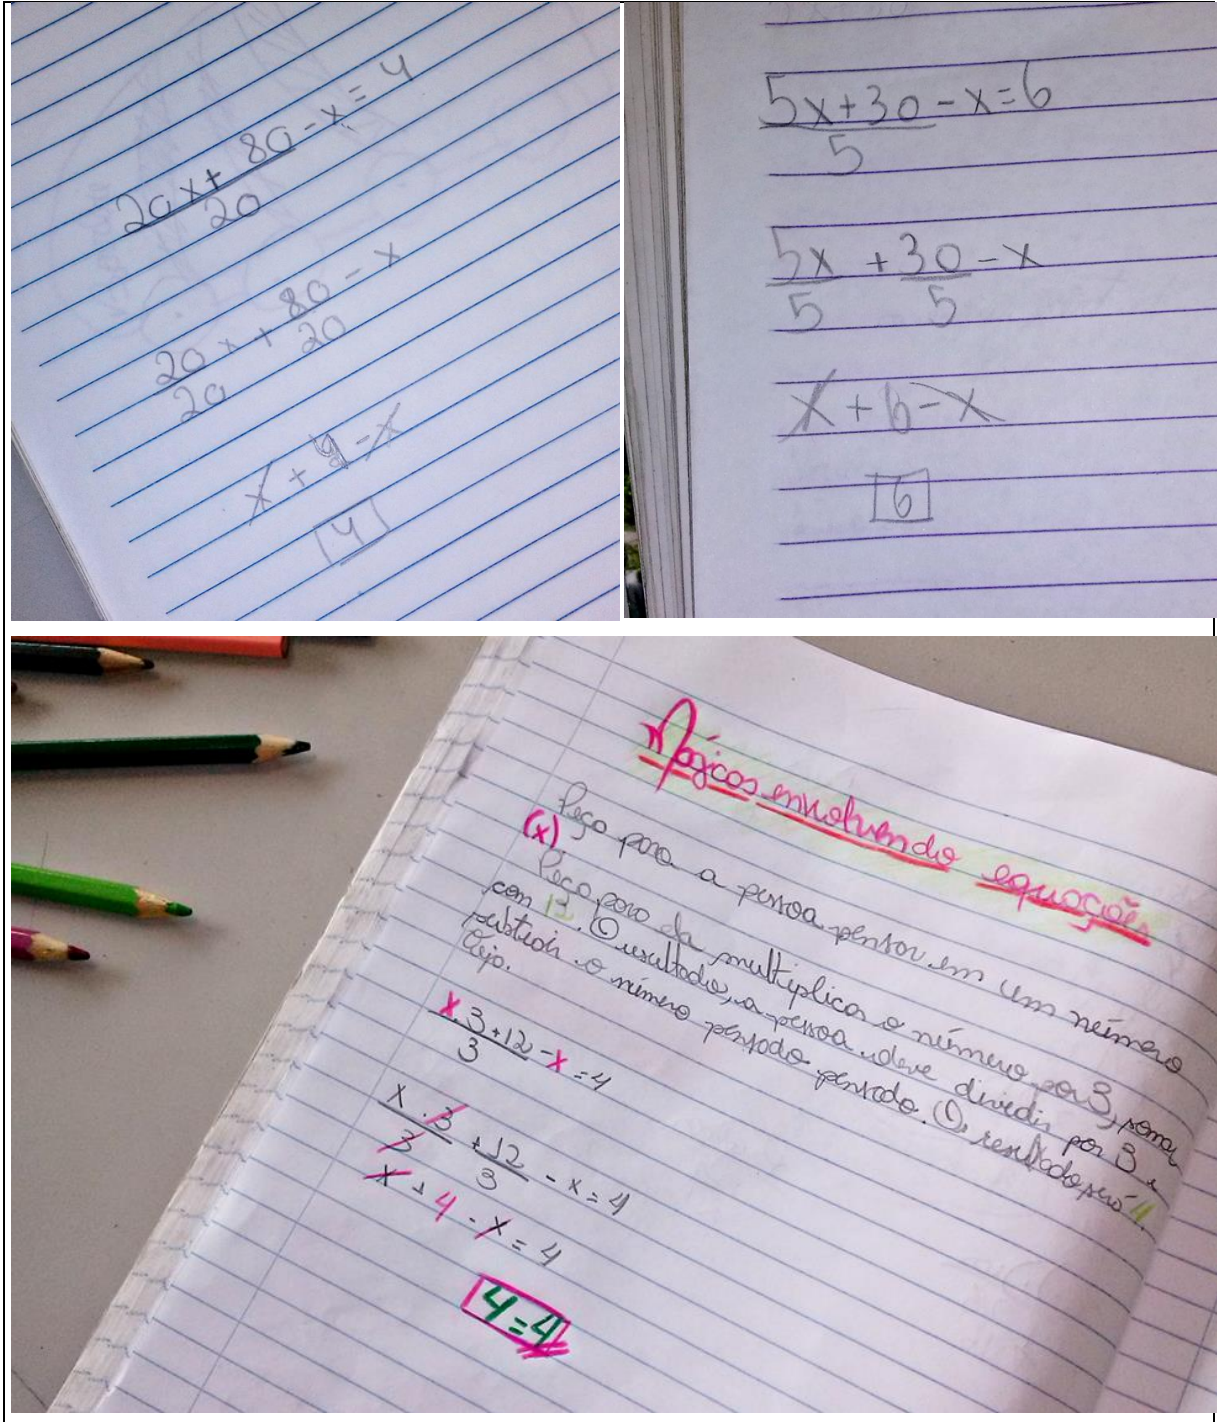 20x + 80 - x = 4
20
20x + 80 - x
20 20
x + 4 - x
4
5x + 30 - x = 6
5
5x + 30 - x
5 5
x + 6 - x
6
Mágicas envolvendo equações
Peço para a pessoa pensar em um número
(x)
Peço para da multiplicar o número por 3, somar
com 12. O resultado, a pessoa deve dividir por 3 e
subtrair o número pensado. O resultado será 4.
Veja.
x.3+12 - x = 4
3
x.3 + 12 - x = 4
3 3
x + 4 - x = 4
4=4